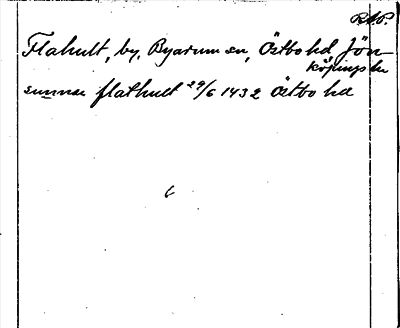 RAP.
Flahult, by, Byarum sn, Östbo hd Jön-
köpings ln
sunnae flathult 29/6 1432 Östbo hd